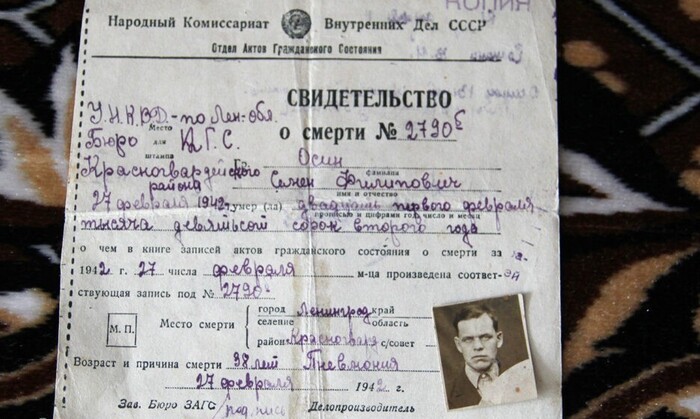 КОПИЯ
Народный Комиссариат Внутренних Дел СССР
Отдел Актов Гражданского Состояния
СВИДЕТЕЛЬСТВО
о смерти № 2790б
У.Н.К.В.Д.-по Лен-обл.
Бюро З.А.Г.С.
Место для штампа
Красногвардейского
района
27 февраля 1942 г.
Гр. Осин
фамилия
Семен Филипович
имя и отчество
умер (ла) двадцать первого февраля
прописью и цифрами год, число и месяц
тысяча девятьсот сорок второго года
о чем в книге записей актов гражданского состояния о смерти за
1942 г. 27 числа февраля м-ца произведена соответ-
ствующая запись под № 2790б
Место смерти
город Ленинград край
селение область
район Красногвард с/совет
М. П.
Возраст и причина смерти 38 лет Пневмония
27 февраля 1942 г.
Зав. Бюро ЗАГС /подпись Делопроизводитель